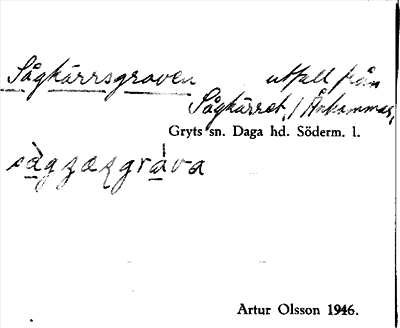 Sågkärrsgraven utfall från
Sågkärret, i Ånhammar,
Gryts sn. Daga hd. Söderm. l.
sàgʒæʀgràva
Artur Olsson 1946.